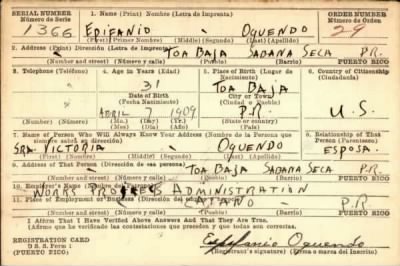 SERIAL NUMBER
Número de Serie
1366
1. Name (Print) Nombre (Letra de Imprenta)
EDIFANIO - OQUENDO
(First) (Primer Nombre) (Middle) (Segundo) (Last) (Apellido)
ORDER NUMBER
Número de Orden
29
2. Address (Print) Dirección (Letra de Imprenta)
TOA BAJA SABANA SECA P.R.
(Number and street) (Número y Calle) (Town) (Pueblo) PUERTO RICO
3. Telephone (Teléfono)
4. Age in Years (Edad)
31
Date of Birth
(Fecha Nacimiento)
ABRIL 7 1909
(Mo.) (Day) (Yr.)
(Número) (Mes) (Día) (Año)
5. Place of Birth (Lugar de Nacimiento)
TOA BAJA
City or Town
(Ciudad o Pueblo)
P.R.
(State or country)
6. Country of Citizenship
(Ciudadanía)
U.S.
7. Name of Person Who Will Always Know Your Address (Nombre de la Persona que siempre sabrá su dirección)
SRA. VICTORIA - OQUENDO
(Middle) (Segundo) (Last) (Apellido)
8. Relationship of That Person (Parentesco)
ESPOSA
9. Address of That Person (Dirección de esa persona)
TOA BAJA SABANA SECA P.R.
(Number and street) (Número y Calle) (Town) (Pueblo) PUERTO RICO
10. Employer's Name (Nombre del Patrono)
WORKS PROGRESS ADMINISTRATION
11. Place of Employment or Business
CATAÑO - P.R.
(Number and street) (Número y Calle) (Town) (Pueblo) PUERTO RICO
I Affirm That I Have Verified Above Answers And That They Are True.
Afirmo que he verificado las contestaciones que preceden y que todas son ciertas.
REGISTRATION CARD
D. S. S. Form 1
(Form P. R.)
Epifanio Oquendo
Registrant's signature (Firma del Inscrito)